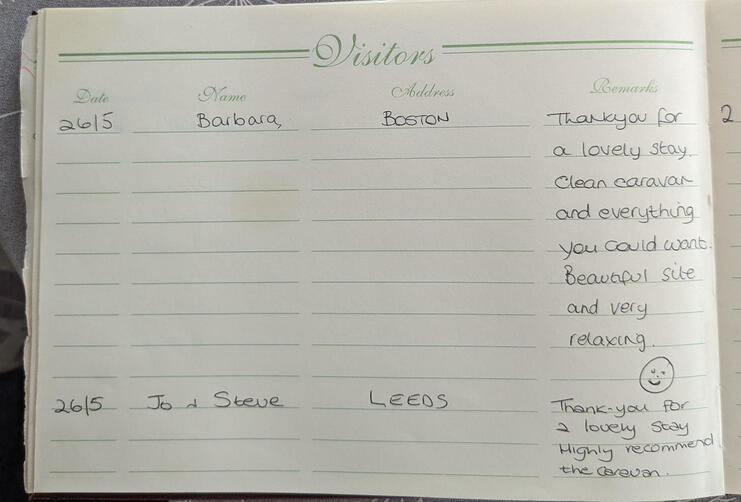 Visitors
Date Name Address Remarks
26/5 Barbara, BOSTON Thankyou for
a lovely stay.
Clean caravan
and everything
you could want.
Beautiful site
and very
relaxing.
26/5 Jo + Steve LEEDS Thank-you for
a lovely stay
Highly recommend
the caravan.
2